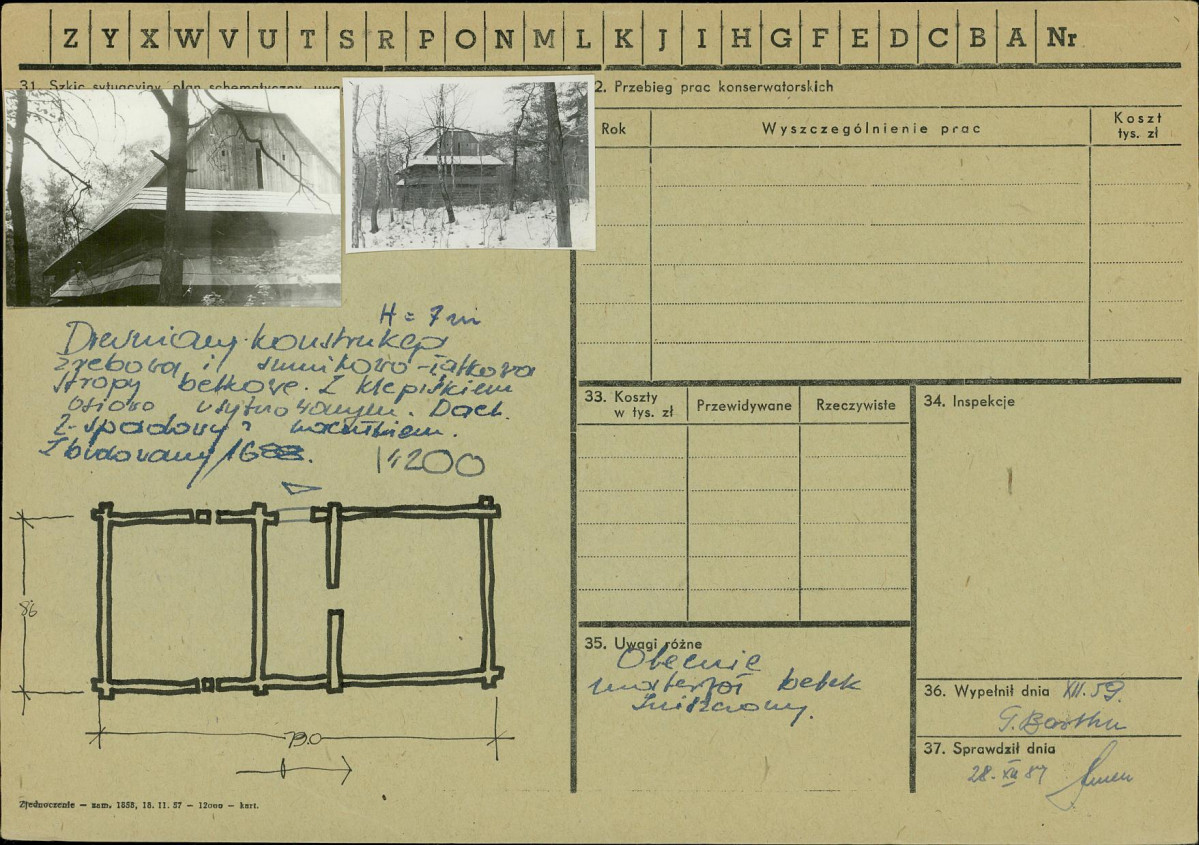 Z Y X W V U T S R P O N M L K J I H G F E D C B A Nr
31. Szkic sytuacyjny, plan schematyczny, uwa
2. Przebieg prac konserwatorskich
Rok
Wyszczególnienie prac
Koszt
tys. zł
H = 7 m
Drewniany konstrukcja
zrębowa i sumikowo-łątkowa
stropy belkowe. Z klepiskiem
osiowo usytuowanym. Dach
2-spadowy z
Zbudowany 16
1:200
86
79.0
33. Koszty
w tys. zł
Przewidywane
Rzeczywiste
34. Inspekcje
35. Uwagi różne
Obecnie
materiał belek
zniszczony.
36. Wypełnił dnia XII. 59.
37. Sprawdził dnia
28. XII 87
Zjednoczenie — zam. 1858, 18. 11. 57 — 12000 — kart.